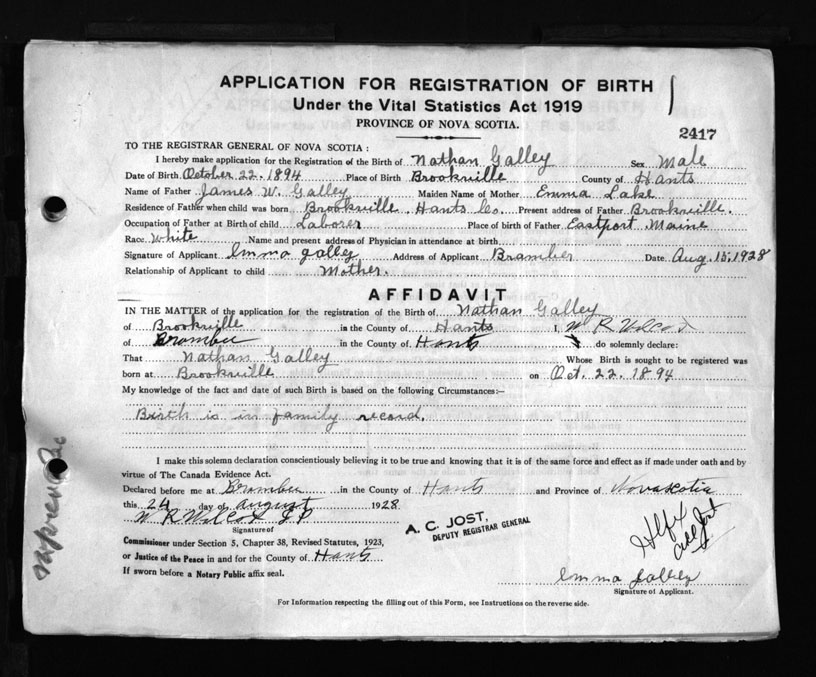 APPLICATION FOR REGISTRATION OF BIRTH
Under the Vital Statistics Act 1919
PROVINCE OF NOVA SCOTIA.
2417
TO THE REGISTRAR GENERAL OF NOVA SCOTIA :
I hereby make application for the Registration of the Birth of Nathan Galley Sex Male
Date of Birth October 22, 1894 Place of Birth Brookville County of Hants
Name of Father James W. Galley Maiden Name of Mother Emma Lake
Residence of Father when child was born Brookville, Hants Co. Present address of Father Brookville.
Occupation of Father at Birth of child Laborer Place of birth of Father Eastport Maine
Race White Name and present address of Physician in attendance at birth
Signature of Applicant Emma Galley Address of Applicant Bramber Date Aug. 15, 1928
Relationship of Applicant to child Mother.
AFFIDAVIT
IN THE MATTER of the application for the registration of the Birth of Nathan Galley
of Brookville in the County of Hants I, W R Wilcox
of Bramber in the County of Hants do solemnly declare:
That Nathan Galley Whose Birth is sought to be registered was
born at Brookville on Oct. 22. 1894
My knowledge of the fact and date of such Birth is based on the following Circumstances:—
Birth is in family record.
I make this solemn declaration conscientiously believing it to be true and knowing that it is of the same force and effect as if made under oath and by
virtue of The Canada Evidence Act.
Declared before me at Bramber in the County of Hants and Province of Nova Scotia
this 24 day of August 1928
W R Wilcox J P
Signature of
A. C. JOST,
DEPUTY REGISTRAR GENERAL
Hlfx
Commissioner under Section 5, Chapter 38, Revised Statutes, 1923,
or Justice of the Peace in and for the County of Hants
If sworn before a Notary Public affix seal.
Emma Galley
Signature of Applicant.
For Information respecting the filling out of this Form, see Instructions on the reverse side.